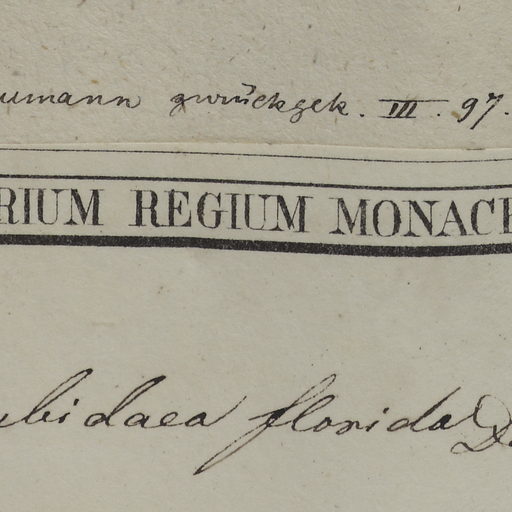 umann zurückgek. III. 97.
RIUM REGIUM MONAC
ubidaea florida